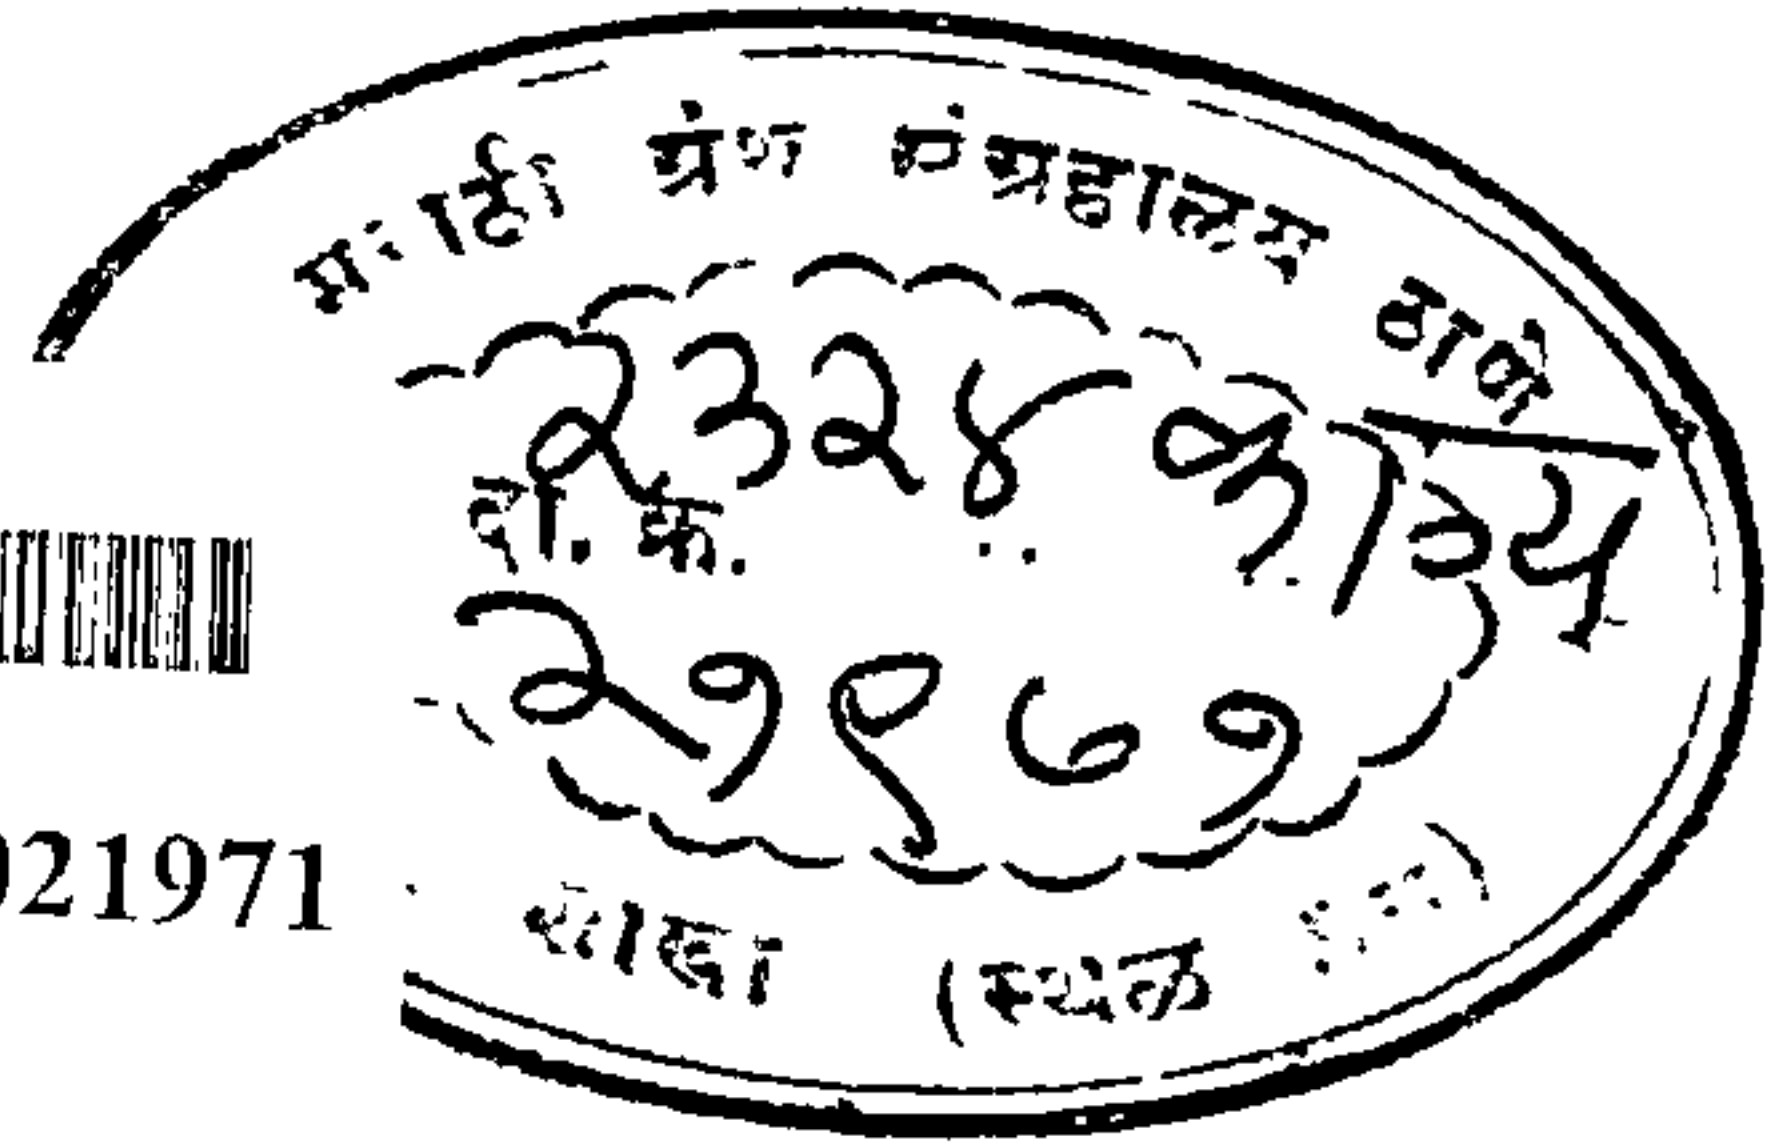 मराठी ग्रंथ संग्रहालय ठाणे
२३२४ काव्य
दा. क्र.
२१९७१
021971
शाखा (स्थळ